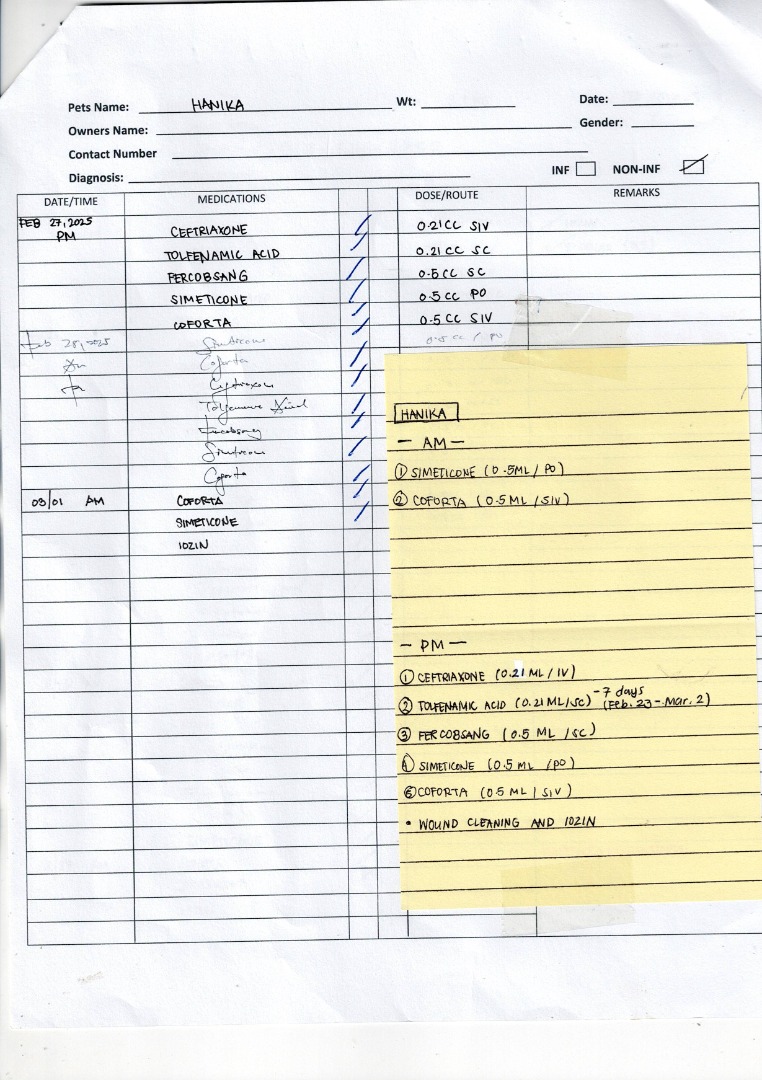 Pets Name: HANIKA Wt: Date:
Owners Name: Gender:
Contact Number
Diagnosis: INF NON-INF
DATE/TIME MEDICATIONS DOSE/ROUTE REMARKS
FEB 27, 2025 CEFTRIAXONE 0.21CC SIV
PM
TOLFENAMIC ACID 0.21CC SC
FERCOBSANG 0.5CC SC
SIMETICONE 0.5CC PO
COFORTA 0.5CC SIV
Feb 28, 2025 Simeticone 0.5cc / PO
Coforta
Ceftriaxone
Tolfenamic Acid
Fercobsang
Simeticone
Coforta
03/01 AM COFORTA
SIMETICONE
IOZIN
HANIKA
- AM -
① SIMETICONE (0.5ML/PO)
② COFORTA (0.5ML/SIV)
- PM -
① CEFTRIAXONE (0.21 ML/IV)
② TOLFENAMIC ACID (0.21ML/SC) - 7 days
(Feb. 23 - Mar. 2)
③ FERCOBSANG (0.5 ML /SC)
④ SIMETICONE (0.5 ML /PO)
⑤ COFORTA (0.5 ML / SIV)
• WOUND CLEANING AND IOZIN